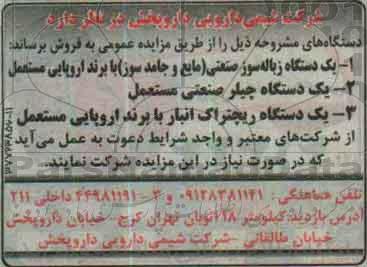 شرکت شیمی دارویی داروپخش در نظر دارد
دستگاه‌های مشروحه ذیل را از طریق مزایده عمومی به فروش برساند:
۱- یک دستگاه زباله‌سوز صنعتی (مایع و جامد سوز) با برند اروپایی مستعمل
۲- یک دستگاه چیلر صنعتی مستعمل
۳- یک دستگاه ریچتراک انبار با برند اروپایی مستعمل
از شرکت‌های معتبر و واجد شرایط دعوت به عمل می‌آید
که در صورت نیاز در این مزایده شرکت نمایند.
تلفن هماهنگی: ۰۹۱۲۸۳۸۱۱۴۱ و ۳-۴۴۹۸۱۱۹۱ داخلی ۲۱۱
آدرس بازدید: کیلومتر ۱۸ اتوبان تهران کرج - خیابان داروپخش
خیابان طالقانی - شرکت شیمی دارویی داروپخش